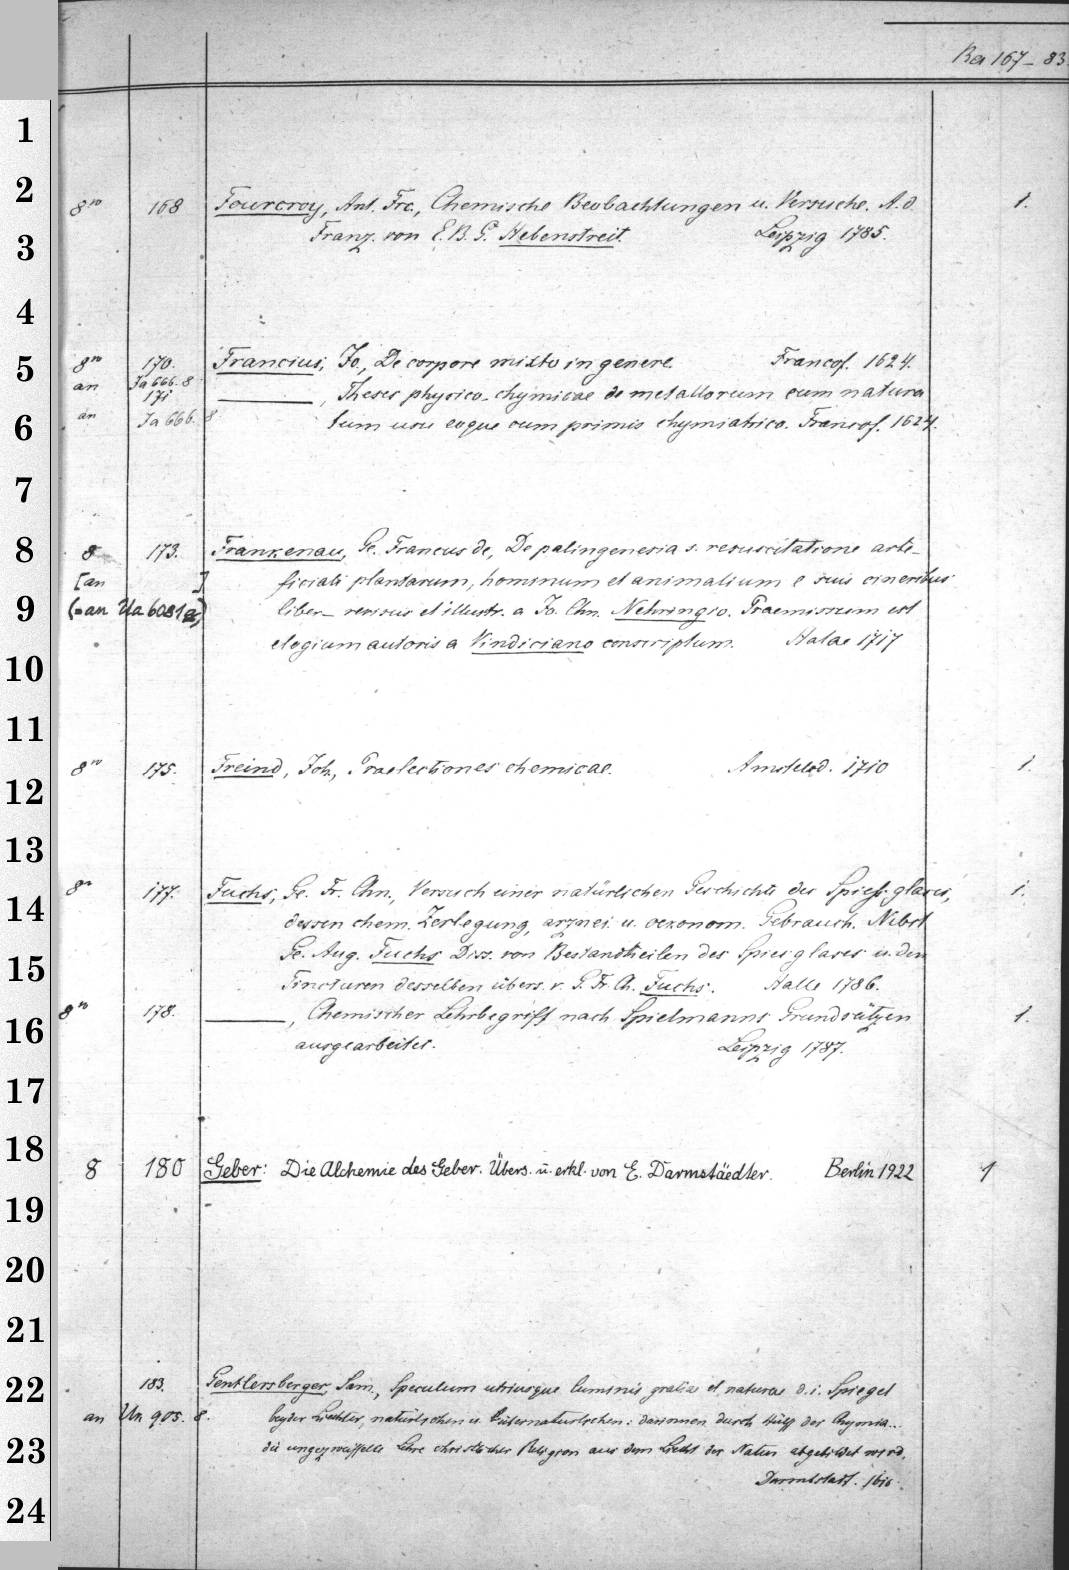 Ra 167-83
1
2
8vo 168 Fourcroy, Ant. Frc., Chemische Beobachtungen u. Versuche. A. d. 1.
3
Franz. von E. B. G. Hebenstreit. Leipzig 1785.
4
5
8vo 170. Francius, Jo., De corpore mixto in genere. Francof. 1624.
an Ja 666. 8
171 ———, Theses physico-chymicae de metallorum cum natura
6
an Ja 666. 8 tum usu eoque cum primis chymiatrico. Francof. 1624.
7
8
8 173. Frankenau, Ge. Francus de, De palingenesia s. resuscitatione arti-
[an ] ficiali plantarum, hominum et animalium e suis cineribus
9
(=an Ua 6081a) liber- revisus et illustr. a Jo. Chn. Nehringio. Praemissum est
10
elogium autoris a Vindiciano conscriptum. Halae 1717
11
12
8vo 175. Freind, Joh., Praelectiones chemicae. Amstelod. 1710 1.
13
14
8vo 177. Fuchs, Ge. Fr. Chn., Versuch einer natürlichen Geschichte des Spiessglases, 1.
dessen chem. Zerlegung, arznei. u. oekonom. Gebrauch. Nebst
15
Ge. Aug. Fuchs Diss. von Bestandtheilen des Spiesglases u. den
Tincturen desselben übers. v. G. Fr. Ch. Fuchs. Halle 1786.
16
8vo 178. ———, Chemischer Lehrbegriff nach Spielmanns Grundsätzen 1.
ausgearbeitet. Leipzig 1787.
17
18
8 180 Geber: Die Alchemie des Geber. Übers. u. erkl. von E. Darmstäedter. Berlin 1922 1
19
20
21
22
183. Gentlersberger, Sam., Speculum utriusque luminis, gratiae et naturae d. i. Spiegel
an Un 905. 8. beyder Liechter, natürlichen u. : darinnen durch Hülff der Chymia..
23
die ungezweiffelte Lehre christlicher Religion aus dem Liecht der Natur abgebildet wird.
Darmbstatt. 1616.
24